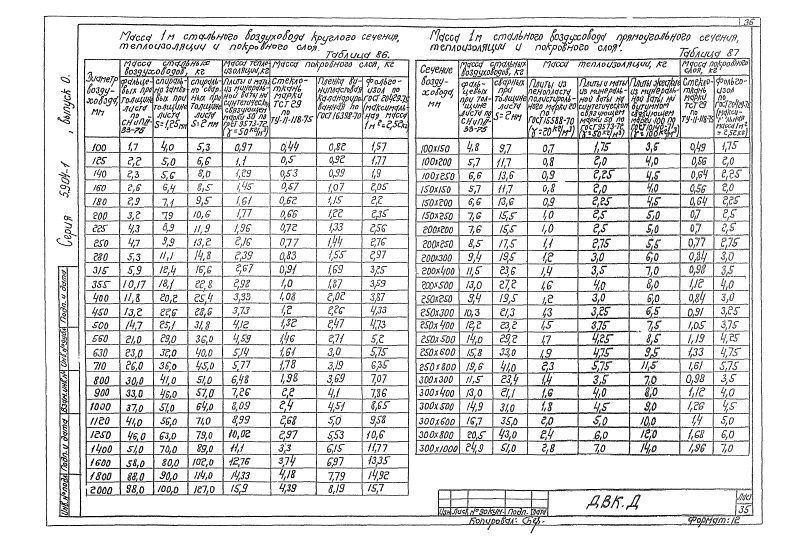 36
Серия 5.904-1 , выпуск 0.
Масса 1м стального воздуховода круглого сечения,
теплоизоляции и покровного слоя.
Таблица 86.
Диаметр воздуховода, мм | Масса стальных воздуховодов, кг | Масса теплоизоляции, кг | Масса покровного слоя, кг
100 1,7 4,0 5,3 0,97 0,44 0,82 1,57
125 2,2 5,0 6,6 1,1 0,5 0,92 1,77
140 2,3 5,6 8,0 1,29 0,53 0,99 1,9
160 2,6 6,4 8,5 1,45 0,57 1,07 2,05
180 2,9 7,1 9,5 1,61 0,62 1,15 2,2
200 3,2 7,9 10,6 1,77 0,66 1,22 2,35
225 4,3 8,9 11,9 1,96 0,72 1,33 2,56
250 4,7 9,9 13,2 2,16 0,77 1,44 2,76
280 5,3 11,1 14,8 2,39 0,83 1,55 2,97
315 5,9 12,4 16,6 2,67 0,91 1,69 3,25
355 10,17 18,1 22,8 2,98 1,0 1,87 3,59
400 11,8 20,2 25,4 3,33 1,08 2,02 3,87
450 13,2 22,6 28,6 3,73 1,2 2,26 4,33
500 14,7 25,1 31,8 4,12 1,32 2,47 4,73
560 21,0 29,0 36,0 4,59 1,46 2,71 5,2
630 23,0 32,0 40,0 5,14 1,61 3,0 5,75
710 26,0 36,0 45,0 5,77 1,78 3,19 6,35
800 30,0 41,0 51,0 6,48 1,98 3,69 7,07
900 33,0 46,0 57,0 7,26 2,2 4,1 7,86
1000 37,0 51,0 64,0 8,09 2,4 4,51 8,65
1120 41,0 56,0 71,0 8,99 2,68 5,0 9,58
1250 46,0 63,0 79,0 10,02 2,97 5,53 10,6
1400 51,0 70,0 89,0 11,1 3,3 6,15 11,77
1600 58,0 80,0 102,0 12,76 3,74 6,97 13,35
1800 88,0 90,0 114,0 14,33 4,18 7,79 14,92
2000 98,0 100,0 127,0 15,9 4,39 8,19 15,7
Масса 1м стального воздуховода прямоугольного сечения,
теплоизоляции и покровного слоя.
Таблица 87
Сечение воздуховода, мм | Масса стальных воздуховодов, кг | Масса теплоизоляции, кг | Масса покровного слоя, кг
100х150 4,8 9,7 0,7 1,75 3,5 0,49 1,75
100х200 5,7 11,7 0,8 2,0 4,0 0,56 2,0
100х250 6,6 13,6 0,9 2,25 4,5 0,64 2,25
150х150 5,7 11,7 0,8 2,0 4,0 0,56 2,0
150х200 6,6 13,6 0,9 2,25 4,5 0,64 2,25
150х250 7,6 15,5 1,0 2,5 5,0 0,7 2,5
200х200 7,6 15,5 1,0 2,5 5,0 0,7 2,5
200х250 8,5 17,5 1,1 2,75 5,5 0,77 2,75
200х300 9,4 19,5 1,2 3,0 6,0 0,84 3,0
200х400 11,5 23,6 1,4 3,5 7,0 0,98 3,5
200х500 13,0 27,2 1,6 4,0 8,0 1,12 4,0
250х250 9,4 19,5 1,2 3,0 6,0 0,84 3,0
250х300 10,3 21,3 1,3 3,25 6,5 0,91 3,25
250х400 12,2 23,2 1,5 3,75 7,5 1,05 3,75
250х500 14,0 29,2 1,7 4,25 8,5 1,19 4,25
250х600 15,8 33,0 1,9 4,75 9,5 1,33 4,75
250х800 19,6 41,0 2,3 5,75 11,5 1,61 5,75
300х300 11,5 23,4 1,4 3,5 7,0 0,98 3,5
300х400 13,0 27,1 1,6 4,0 8,0 1,12 4,0
300х500 14,9 31,0 1,8 4,5 9,0 1,26 4,5
300х600 16,7 35,0 2,0 5,0 10,0 1,4 5,0
300х800 20,5 43,0 2,4 6,0 12,0 1,68 6,0
300х1000 24,9 51,0 2,8 7,0 14,0 1,96 7,0
Инв.№подл. Подп. и дата Взам.инв.№ Подп. и дата
Изм. Лист №докум. Подп. Дата
ДВК.Д
Лист
35
Копировал:
Формат: 12